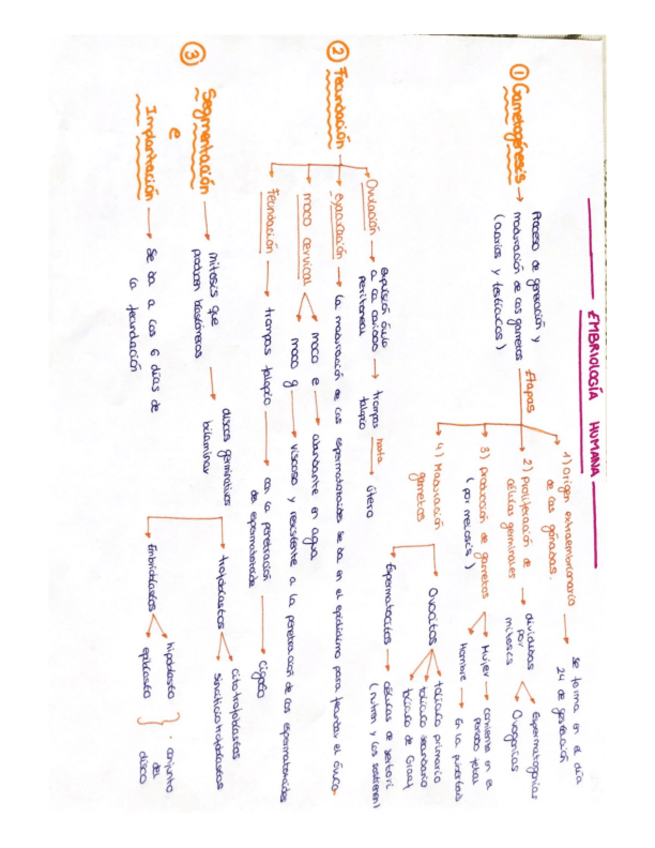 EMBRIOLOGÍA HUMANA
① Gametogénesis → Proceso de generación y
maduración de los gametos
(ovarios y testículos)
Etapas
1) Origen extraembrionario
de las gónadas.
se forma en el día
24 de gestación
2) Proliferación de
células germinales
divididas
por
mitosis
Espermatogonias
Ovogonias
3) producción de gametos
(por meiosis)
Mujer → comienza en el
periodo fetal
Hombre → En la pubertad
4) Maduración
gametos
Ovocitos
folículo primario
folículo secundario
folículo de Graaf
Espermatocitos → células de sertori
(nutren y los sostienen)
② Fecundación
Ovulación → expulsión óvulo
a la cavidad
peritoneal
→ trompas
falopio
hasta → útero
eyaculación → la maduración de los espermatozoides se da en el epidídimo para fecundar el óvulo
moco cervical
moco e → abundante en agua
moco g → viscoso y resistente a la penetración de los espermatozoides
Fecundación → trompas falopio → con la penetración
de espermatozoide
→ cigoto
③ Segmentación
e
Implantación
→ mitosis que
producen blastómeros
→ discos germinativos
bilaminar
trofoblastos
citotrofoblastos
sincitiotrofoblastos
Embrioblastos
hipoblasto
epiblasto
conjunto
del
disco
→ Se da a los 6 días de
la fecundación